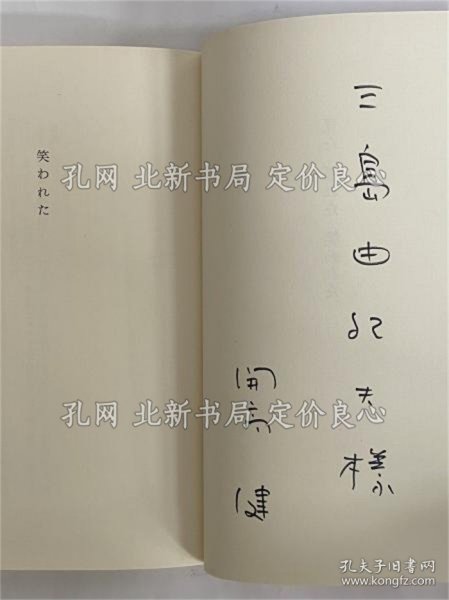 三島由紀夫様
開高健
笑われた
孔网 北新书局 定价良心
孔网 北新书局 定价良心
孔网 北新书局 定价良心
孔夫子旧书网
www.kongfz.com